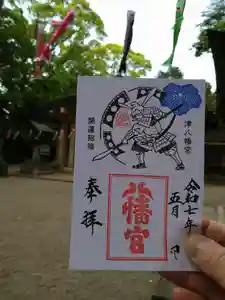 津八幡宮
開運総鎮
奉拝
八幡宮
令和七年
五月